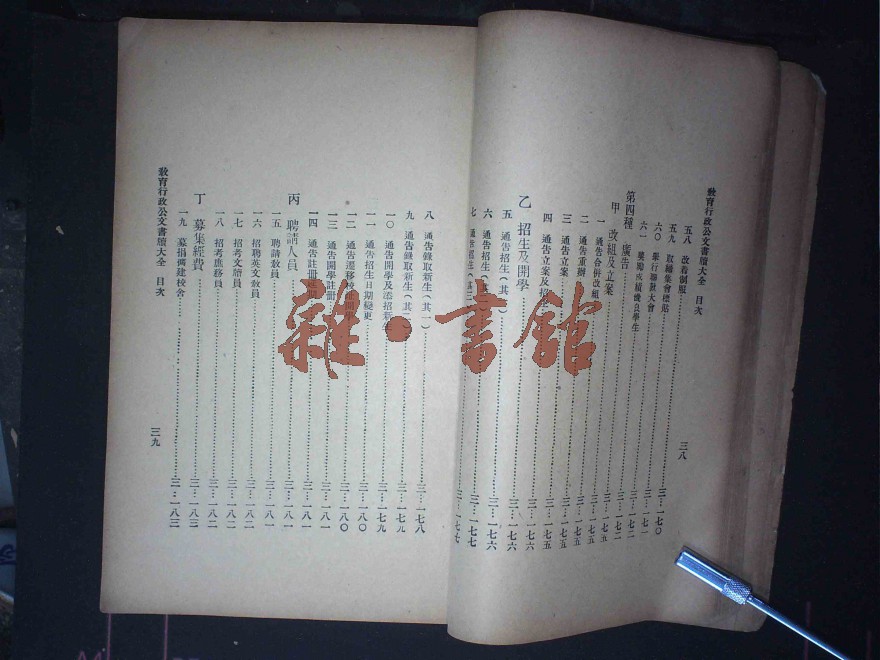 教育行政公文書牘大全 目次 三八
五八 改着制服
五九 取締集會標貼 三…一七〇
六〇 舉行聯歡大會 三…一七一
六一 獎勵成績優良學生 三…一七二
第四種 廣告 三…一七二
甲 改組及立案 三…一七五
一 通告合併改組 三…一七五
二 通告重辦 三…一七五
三 通告立案 三…一七五
四 通告立案及招 三…一七五
乙 招生及開學 三…一七六
五 通告招生(其一) 三…一七六
六 通告招生(其 三…一七六
七 通告招生(其三 三…一七七
八 通告錄取新生(其一) 三…一七八
九 通告錄取新生(其二 三…一七九
一〇 通告開學及添招新生 三…一七九
一一 通告招生日期變更 三…一八〇
一二 通告遷移校址開 三…一八〇
一三 通告開學註冊 三…一八一
一四 通告註冊 三…一八一
丙 聘請人員 三…一八一
一五 聘請教員 三…一八一
一六 招聘英文教員 三…一八二
一七 招考文牘員 三…一八二
一八 招考庶務員 三…一八二
丁 募集經費 三…一八三
一九 募捐興建校舍 三…一八三
教育行政公文書牘大全 目次 三九
雜·書館